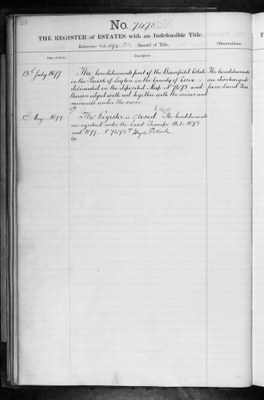 No. 7478
THE REGISTER of ESTATES with an Indefeasible Title.
Reference Vol. Record of Title.
Observations.
Date of Entry.
Description.
13th July 1877
The hereditaments part of the Estate
in the Parish of Leyton in the County of Essex
delineated on the deposited Map No 7478 and
thereon edged with red together with the mines and
minerals under the same
The hereditaments
are discharged
from Land Tax
May 1899
The Register is closed. The hereditaments
are registered under the Land Transfer Acts 1875
and 1897